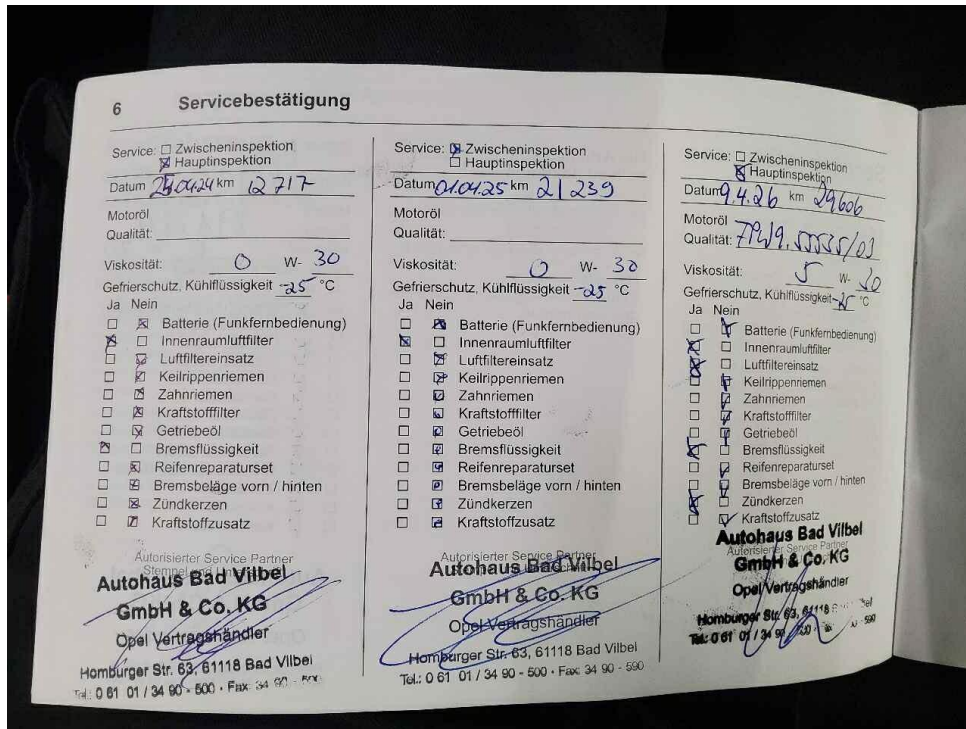 6 Servicebestätigung
Service: Zwischeninspektion
Hauptinspektion
Datum 25.04.24 km 12 717
Motoröl
Qualität:
Viskosität: 0 W- 30
Gefrierschutz, Kühlflüssigkeit -25 °C
Ja Nein
Batterie (Funkfernbedienung)
Innenraumluftfilter
Luftfiltereinsatz
Keilrippenriemen
Zahnriemen
Kraftstofffilter
Getriebeöl
Bremsflüssigkeit
Reifenreparaturset
Bremsbeläge vorn / hinten
Zündkerzen
Kraftstoffzusatz
Autorisierter Service Partner
Stempel und
Autohaus Bad Vilbel
GmbH & Co. KG
Opel Vertragshändler
Homburger Str. 63, 61118 Bad Vilbel
Tel.: 0 61 01 / 34 90 - 500 · Fax: 34 90 - 590
Service: Zwischeninspektion
Hauptinspektion
Datum 01.04.25 km 21 239
Motoröl
Qualität:
Viskosität: 0 W- 30
Gefrierschutz, Kühlflüssigkeit -25 °C
Ja Nein
Batterie (Funkfernbedienung)
Innenraumluftfilter
Luftfiltereinsatz
Keilrippenriemen
Zahnriemen
Kraftstofffilter
Getriebeöl
Bremsflüssigkeit
Reifenreparaturset
Bremsbeläge vorn / hinten
Zündkerzen
Kraftstoffzusatz
Autorisierter Service Partner
Autohaus Bad Vilbel
GmbH & Co. KG
Opel Vertragshändler
Homburger Str. 63, 61118 Bad Vilbel
Tel.: 0 61 01 / 34 90 - 500 · Fax: 34 90 - 590
Service: Zwischeninspektion
Hauptinspektion
Datum 9.4.26 km 29606
Motoröl
Qualität:
Viskosität: 5 W- 30
Gefrierschutz, Kühlflüssigkeit °C
Ja Nein
Batterie (Funkfernbedienung)
Innenraumluftfilter
Luftfiltereinsatz
Keilrippenriemen
Zahnriemen
Kraftstofffilter
Getriebeöl
Bremsflüssigkeit
Reifenreparaturset
Bremsbeläge vorn / hinten
Zündkerzen
Kraftstoffzusatz
Autohaus Bad Vilbel
Autorisierter Service Partner
GmbH & Co. KG
Opel Vertragshändler
Homburger Str. 63, 61118
Tel.: 0 61 01 / 34 90 - 590